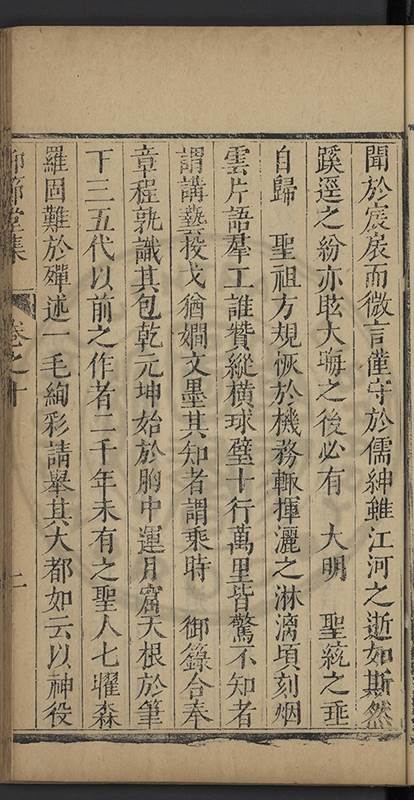 聞於扆扆而微言僅守於儒紳雖江河之逝如斯然
蹊逕之紛亦眩大晦之後必有　大明　聖統之垂
自歸　聖祖方規恢於機務輙揮灑之淋漓頃刻烟
雲片語羣工誰贊縱橫球璧十行萬里皆驚不知者
謂講藝投戈猶嫺文墨其知者謂乘時　御籙合奉
章程孰識其包乾元坤始於胸中運月窟天根於筆
下三五代以前之作者二千年未有之聖人七曜森
羅固難於殫述一毛絢彩請舉其大都如云以神役
節堂集
卷之十
二